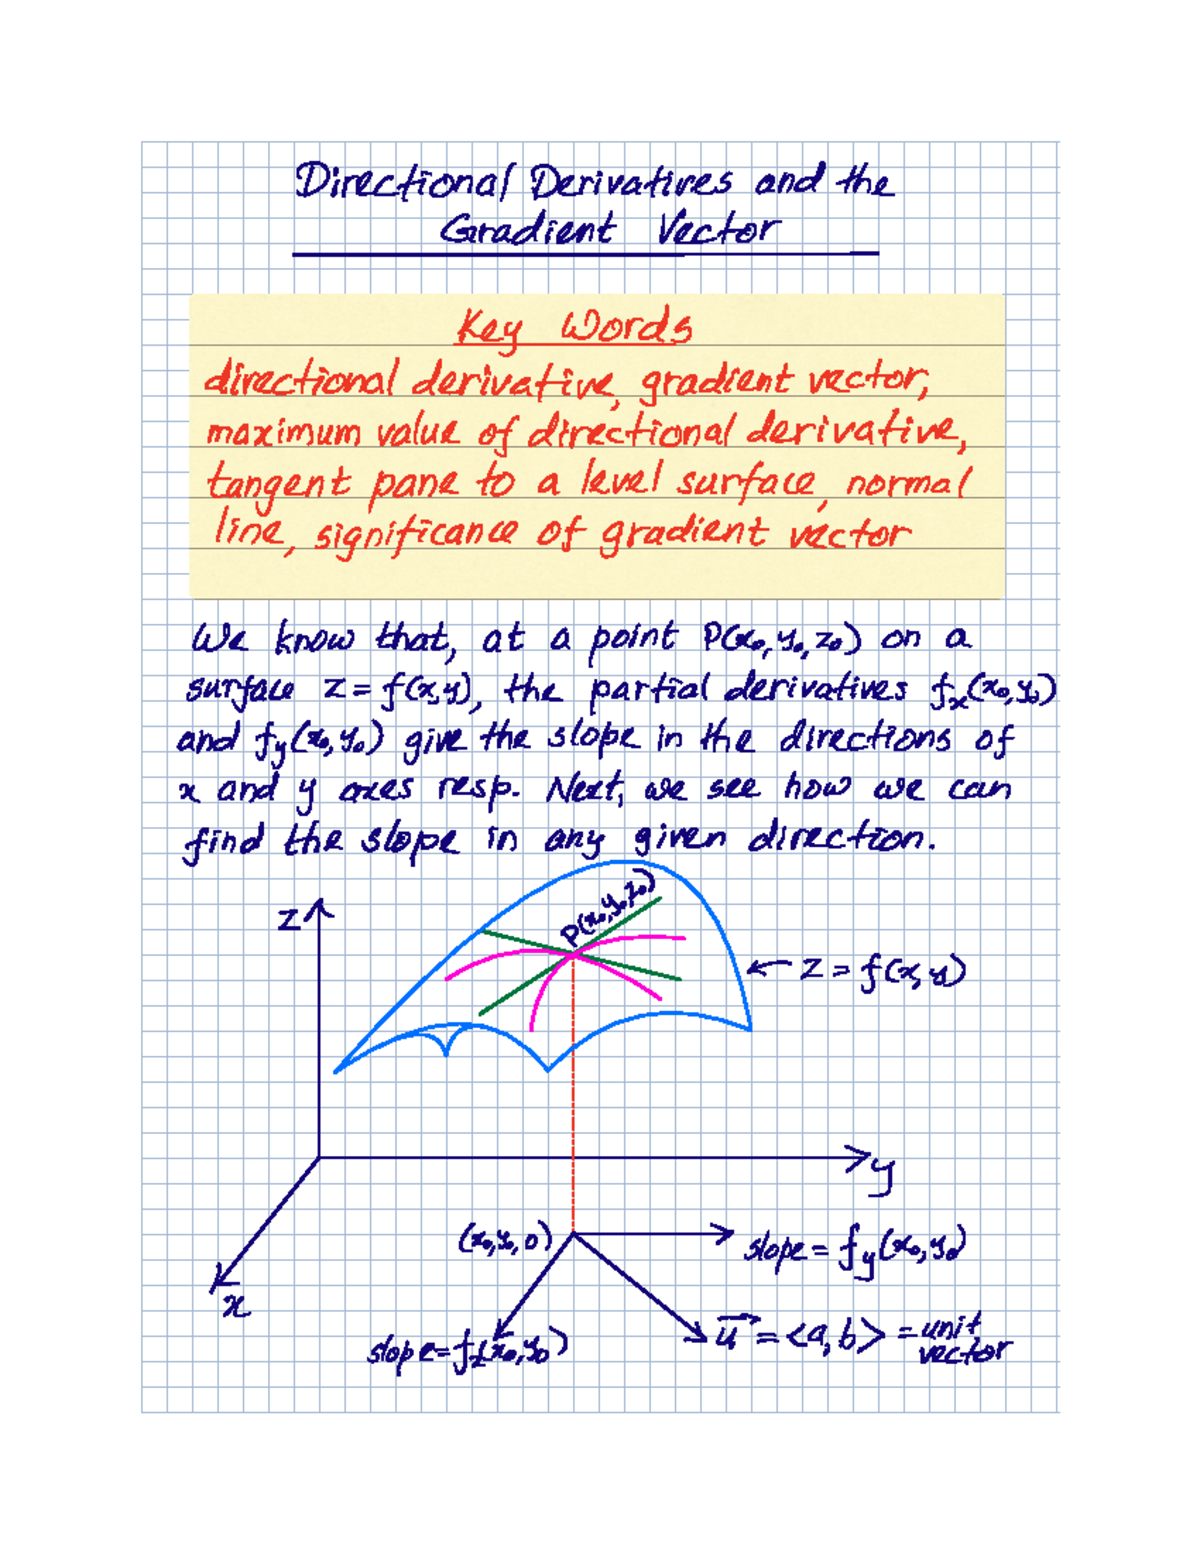 Directional Derivatives and the
Gradient Vector
Key Words
directional derivative, gradient vector,
maximum value of directional derivative,
tangent pane to a level surface, normal
line, significance of gradient vector
We know that, at a point P(x₀,y₀,z₀) on a
surface z = f(x,y), the partial derivatives fₓ(x₀,y₀)
and f_y(x₀,y₀) give the slope in the directions of
x and y axes resp. Next, we see how we can
find the slope in any given direction.
P(x₀,y₀,z₀)
z
z = f(x,y)
y
(x₀,y₀,0)
slope = f_y(x₀,y₀)
x
slope=fₓ(x₀,y₀)
u⃗ = <a,b> = unit
vector